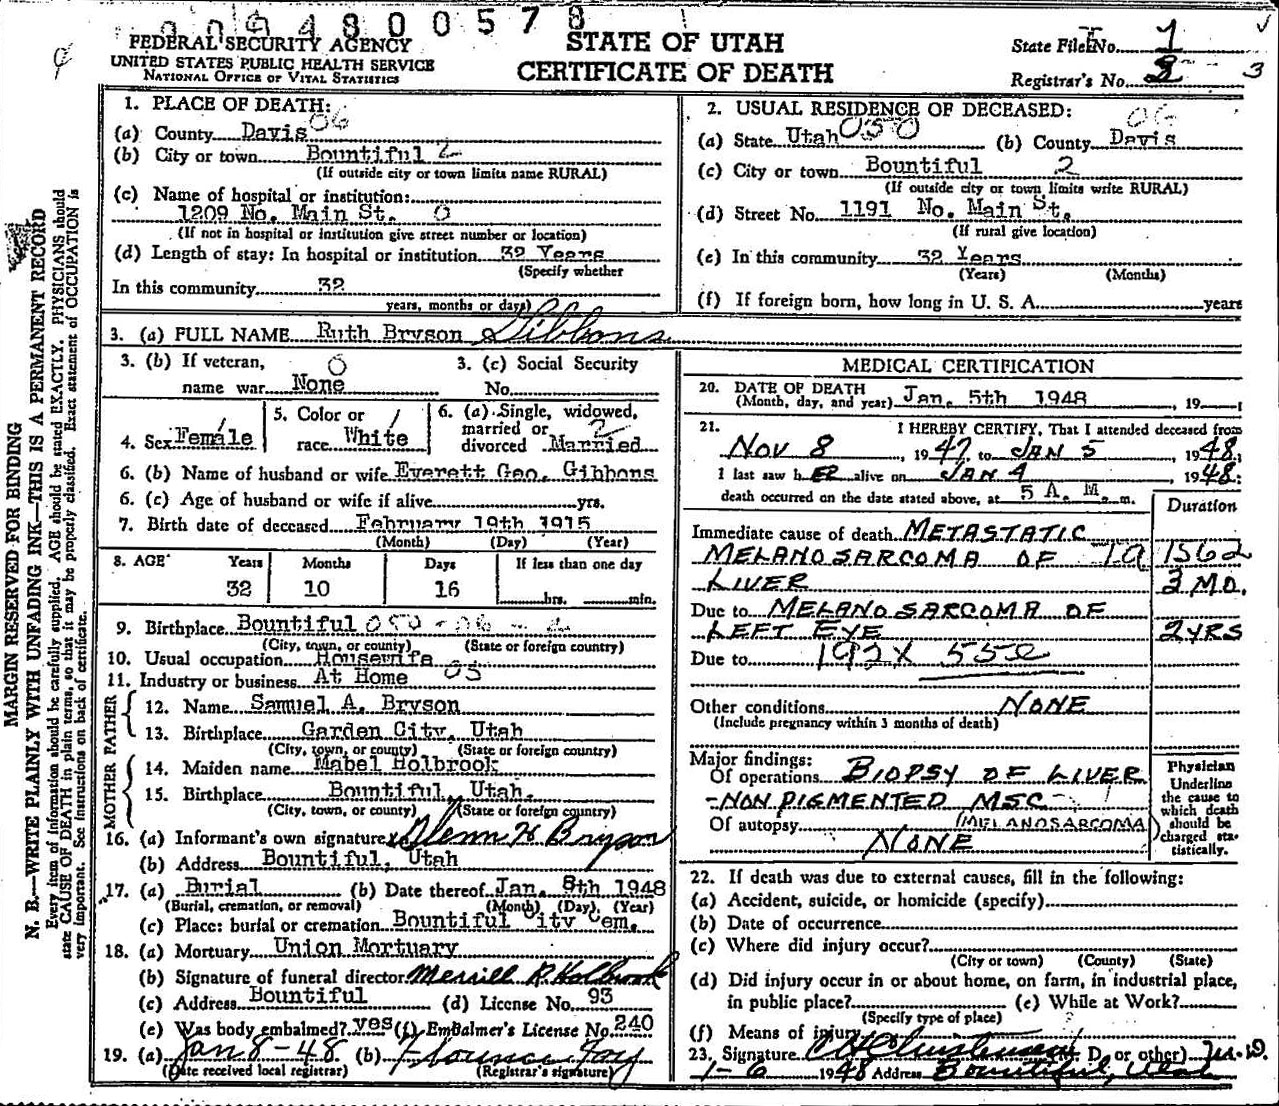 004800578
FEDERAL SECURITY AGENCY
UNITED STATES PUBLIC HEALTH SERVICE
NATIONAL OFFICE OF VITAL STATISTICS
STATE OF UTAH
CERTIFICATE OF DEATH
State File No. 1
Registrar's No. 3
MARGIN RESERVED FOR BINDING
N. B.—WRITE PLAINLY WITH UNFADING INK—THIS IS A PERMANENT RECORD
Every item of information should be carefully supplied. AGE should be stated EXACTLY. PHYSICIANS should
state CAUSE OF DEATH in plain terms, so that it may be properly classified. Exact statement of OCCUPATION is
very important. See instructions on back of certificate.
1. PLACE OF DEATH:
(a) County Davis 06
(b) City or town Bountiful 2
(If outside city or town limits name RURAL)
(c) Name of hospital or institution:
1209 No. Main St. 0
(If not in hospital or institution give street number or location)
(d) Length of stay: In hospital or institution 32 Years
(Specify whether
In this community 32
years, months or days)
2. USUAL RESIDENCE OF DECEASED:
(a) State Utah 050 (b) County Davis 06
(c) City or town Bountiful 2
(If outside city or town limits write RURAL)
(d) Street No. 1191 No. Main St.
(If rural give location)
(e) In this community 32 Years
(Years) (Months)
(f) If foreign born, how long in U. S. A. years
3. (a) FULL NAME Ruth Bryson Gibbons
3. (b) If veteran, 0
name war None
3. (c) Social Security
No.
4. Sex Female
5. Color or /
race White
6. (a) Single, widowed,
married or 2
divorced Married
6. (b) Name of husband or wife Everett Geo. Gibbons
6. (c) Age of husband or wife if alive yrs.
7. Birth date of deceased February 19th 1915
(Month) (Day) (Year)
8. AGE Years Months Days If less than one day
32 10 16 hrs. min.
9. Birthplace Bountiful 050-06-2
(City, town, or county) (State or foreign country)
10. Usual occupation Housewife
11. Industry or business At Home 05
FATHER
12. Name Samuel A. Bryson
13. Birthplace Garden City, Utah
(City, town, or county) (State or foreign country)
MOTHER
14. Maiden name Mabel Holbrook
15. Birthplace Bountiful, Utah.
(City, town, or county) (State or foreign country)
16. (a) Informant's own signature Glenn H Bryson
(b) Address Bountiful, Utah
17. (a) Burial (b) Date thereof Jan. 8th 1948
(Burial, cremation, or removal) (Month) (Day) (Year)
(c) Place: burial or cremation Bountiful City Cem.
18. (a) Mortuary Union Mortuary
(b) Signature of funeral director Merrill R. Holbrook
(c) Address Bountiful (d) License No. 93
(e) Was body embalmed? yes (f) Embalmer's License No. 240
19. (a) Jan 8-48 (b) Florence Foy
(Date received local registrar) (Registrar's signature)
MEDICAL CERTIFICATION
20. DATE OF DEATH
(Month, day, and year) Jan. 5th 1948, 19 ;
21. I HEREBY CERTIFY, That I attended deceased from
Nov 8, 1947 to JAN 5 1948;
I last saw her alive on JAN 4 1948;
death occurred on the date stated above, at 5 A. M. m.
Duration
Immediate cause of death METASTATIC
MELANOSARCOMA OF 19 1562
LIVER 3 MO.
Due to MELANOSARCOMA OF
LEFT EYE 2 YRS
Due to 192X 55e
Other conditions NONE
(Include pregnancy within 3 months of death)
Major findings:
Of operations BIOPSY OF LIVER
-NON PIGMENTED MSC
Of autopsy (MELANOSARCOMA)
NONE
Physician
Underline
the cause to
which death
should be
charged sta-
tistically.
22. If death was due to external causes, fill in the following:
(a) Accident, suicide, or homicide (specify)
(b) Date of occurrence
(c) Where did injury occur?
(City or town) (County) (State)
(d) Did injury occur in or about home, on farm, in industrial place,
in public place? (e) While at Work?
(Specify type of place)
(f) Means of injury
23. Signature (M. D. or other) M.D.
1-6 1948 Address Bountiful, Utah